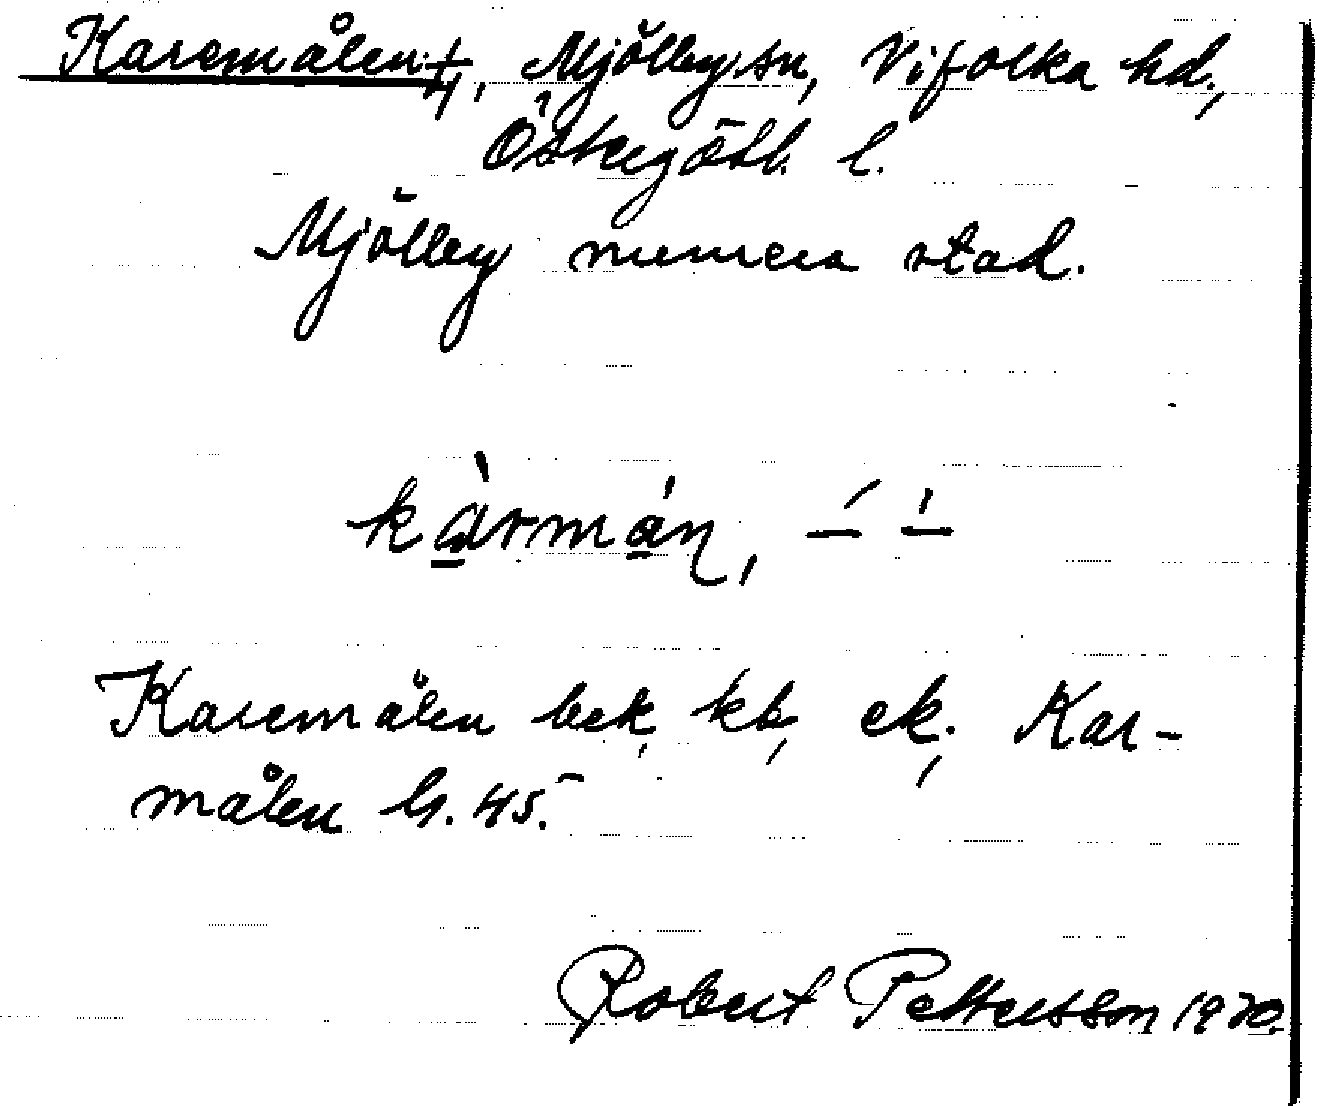 Karemålen ⴕ, Mjölby sn, Vifolka hd.,
Östergötl. l.
Mjölby numera stad.
kàrmán,
Karemålen bek, kb, ek. Kar-
målen G. 45.
Robert Pettersson 1920.